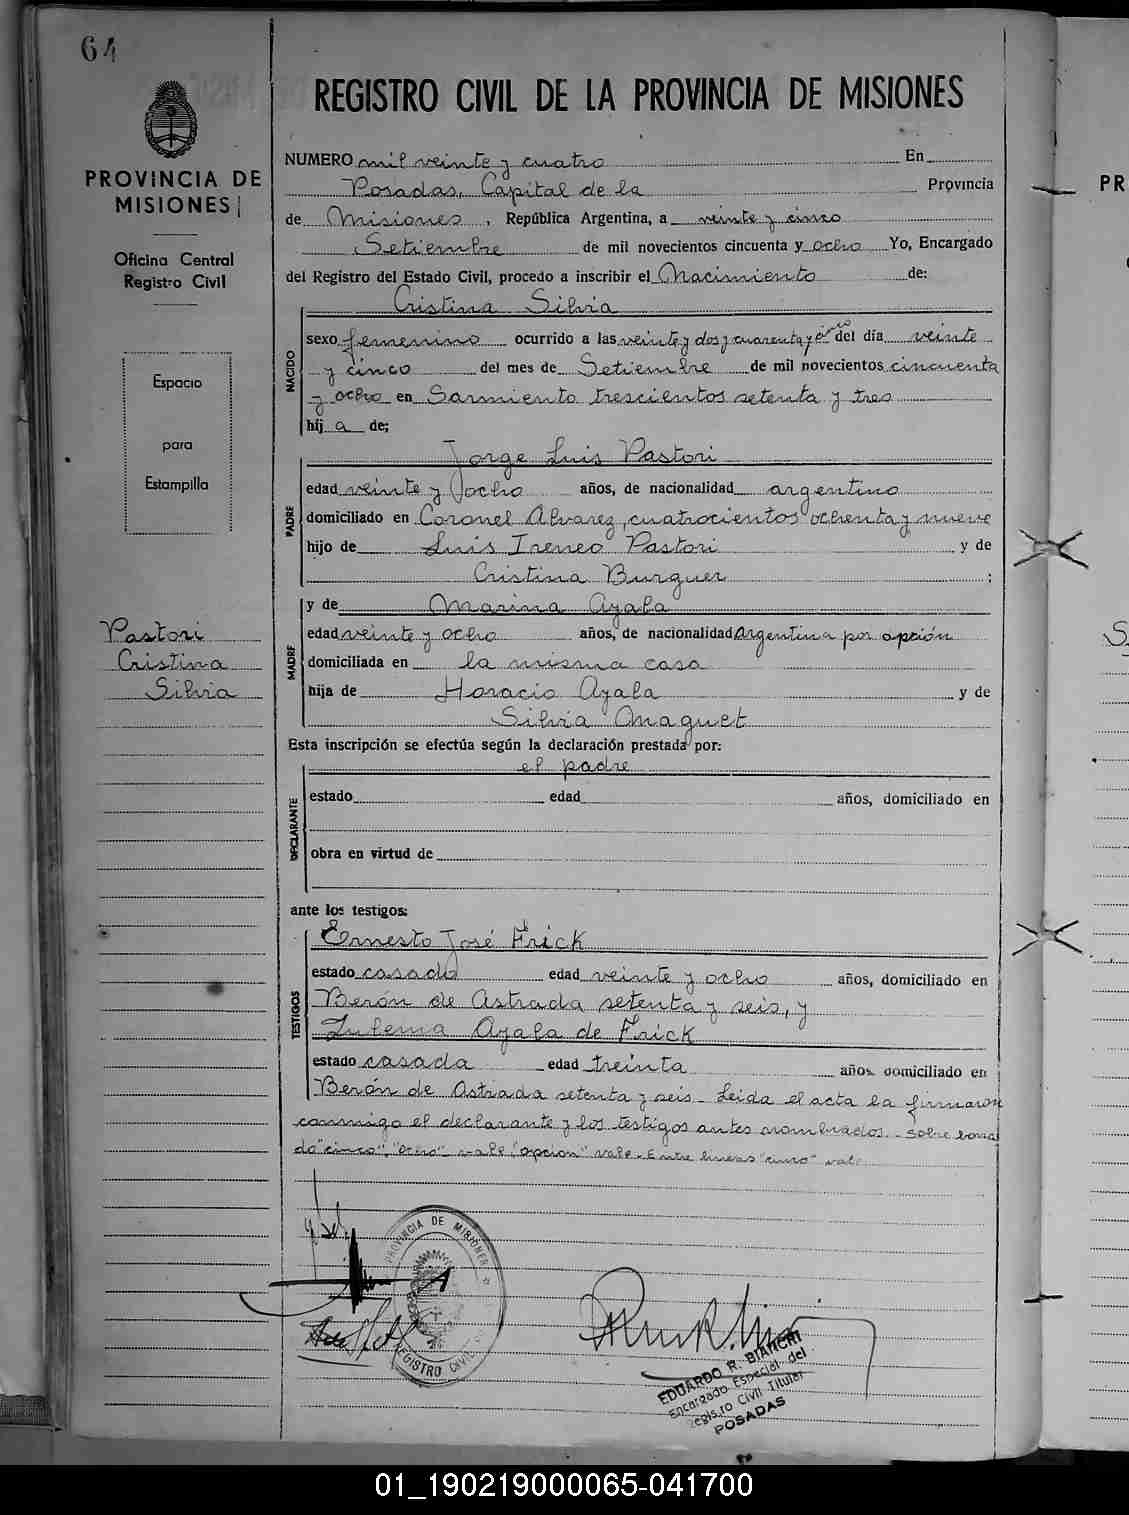 64
REGISTRO CIVIL DE LA PROVINCIA DE MISIONES
PROVINCIA DE
MISIONES
Oficina Central
Registro Civil
Espacio
para
Estampilla
Pastori
Cristina
Silvia
NUMERO mil veinte y cuatro En
Posadas, Capital de la Provincia
de Misiones, República Argentina, a veinte y cinco
Setiembre de mil novecientos cincuenta y ocho Yo, Encargado
del Registro del Estado Civil, procedo a inscribir el Nacimiento de:
NACIDO
Cristina Silvia
sexo femenino ocurrido a las veinte y dos y cuarenta y cinco del día veinte
y cinco del mes de Setiembre de mil novecientos cincuenta
y ocho en Sarmiento trescientos setenta y tres
hij a de;
PADRE
Jorge Luis Pastori
edad veinte y ocho años, de nacionalidad argentino
domiciliado en Coronel Alvarez, cuatrocientos ochenta y nueve
hijo de Luis Ireneo Pastori y de
Cristina Burguer ;
MADRE
y de Marina Ayala
edad veinte y ocho años, de nacionalidad Argentina por opción
domiciliada en la misma casa
hija de Horacio Ayala y de
Silvia Maguet
Esta inscripción se efectúa según la declaración prestada por:
DECLARANTE
el padre
estado edad años, domiciliado en
obra en virtud de
ante los testigos:
TESTIGOS
Ernesto José Frick
estado casado edad veinte y ocho años, domiciliado en
Berón de Astrada setenta y seis, y
Zulema Ayala de Frick
estado casada edad treinta años domiciliado en
Berón de Astrada setenta y seis - Leida el acta la firmaron
conmigo el declarante y los testigos antes nombrados. - Sobre borra
do "cinco", "ocho" vale, "opcion" vale - Entre lineas "cinco" vale
PROVINCIA DE MISIONES
REGISTRO CIVIL
EDUARDO R. BIANCHI
Encargado Especial del
Registro Civil Titular
POSADAS
PR
01_190219000065-041700